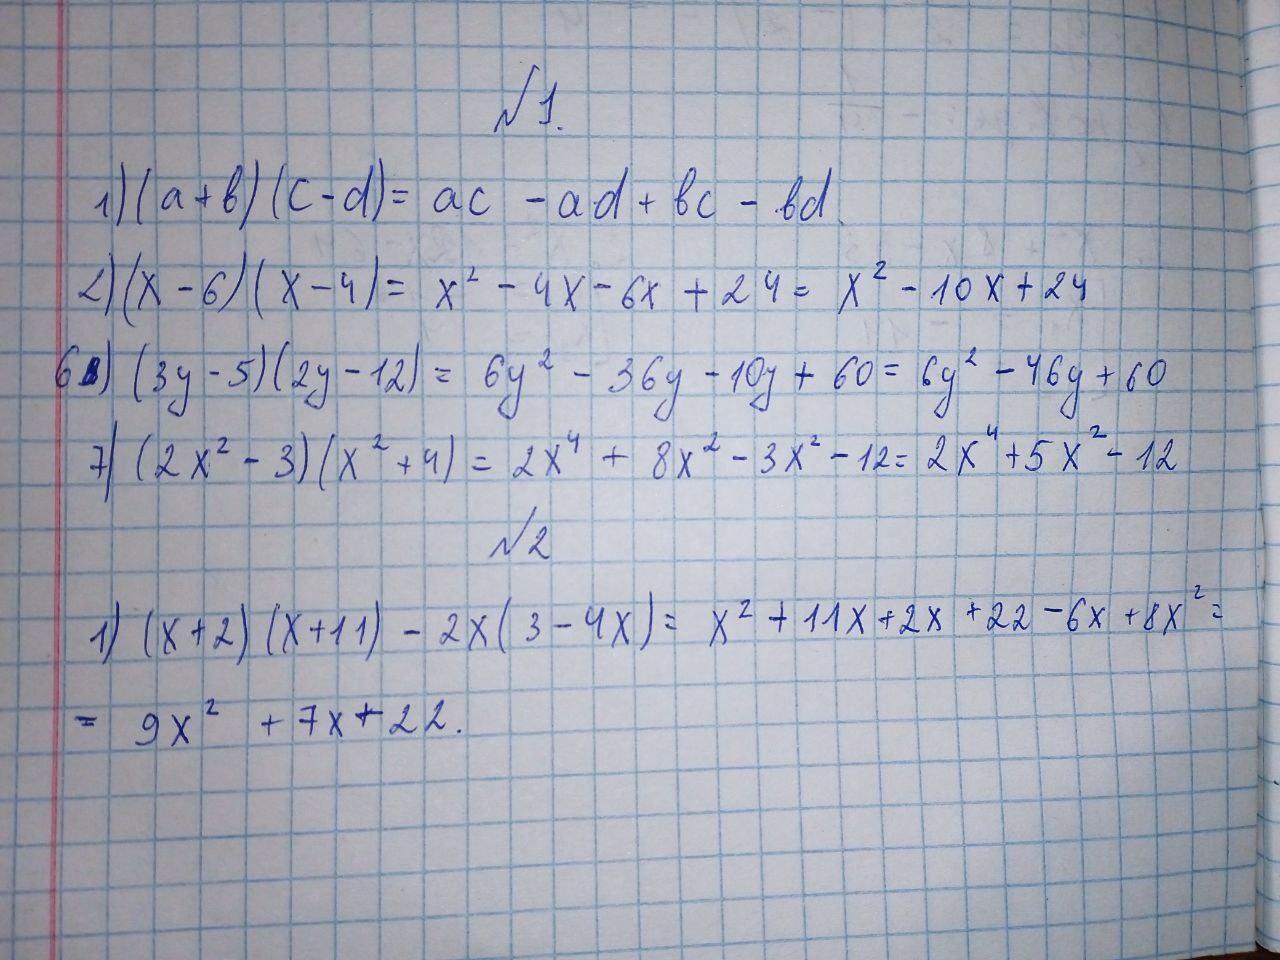 №1.
1) (a+b)(c-d)= ac -ad+bc-bd.
2) (x-6)(x-4)= x²-4x-6x+24= x²-10x+24
6) (3y-5)(2y-12)= 6y²-36y-10y+60= 6y²-46y+60
7) (2x²-3)(x²+4)= 2x⁴+8x²-3x²-12= 2x⁴+5x²-12
№2
1) (x+2)(x+11)-2x(3-4x)= x²+11x+2x+22-6x+8x²=
= 9x²+7x+22.